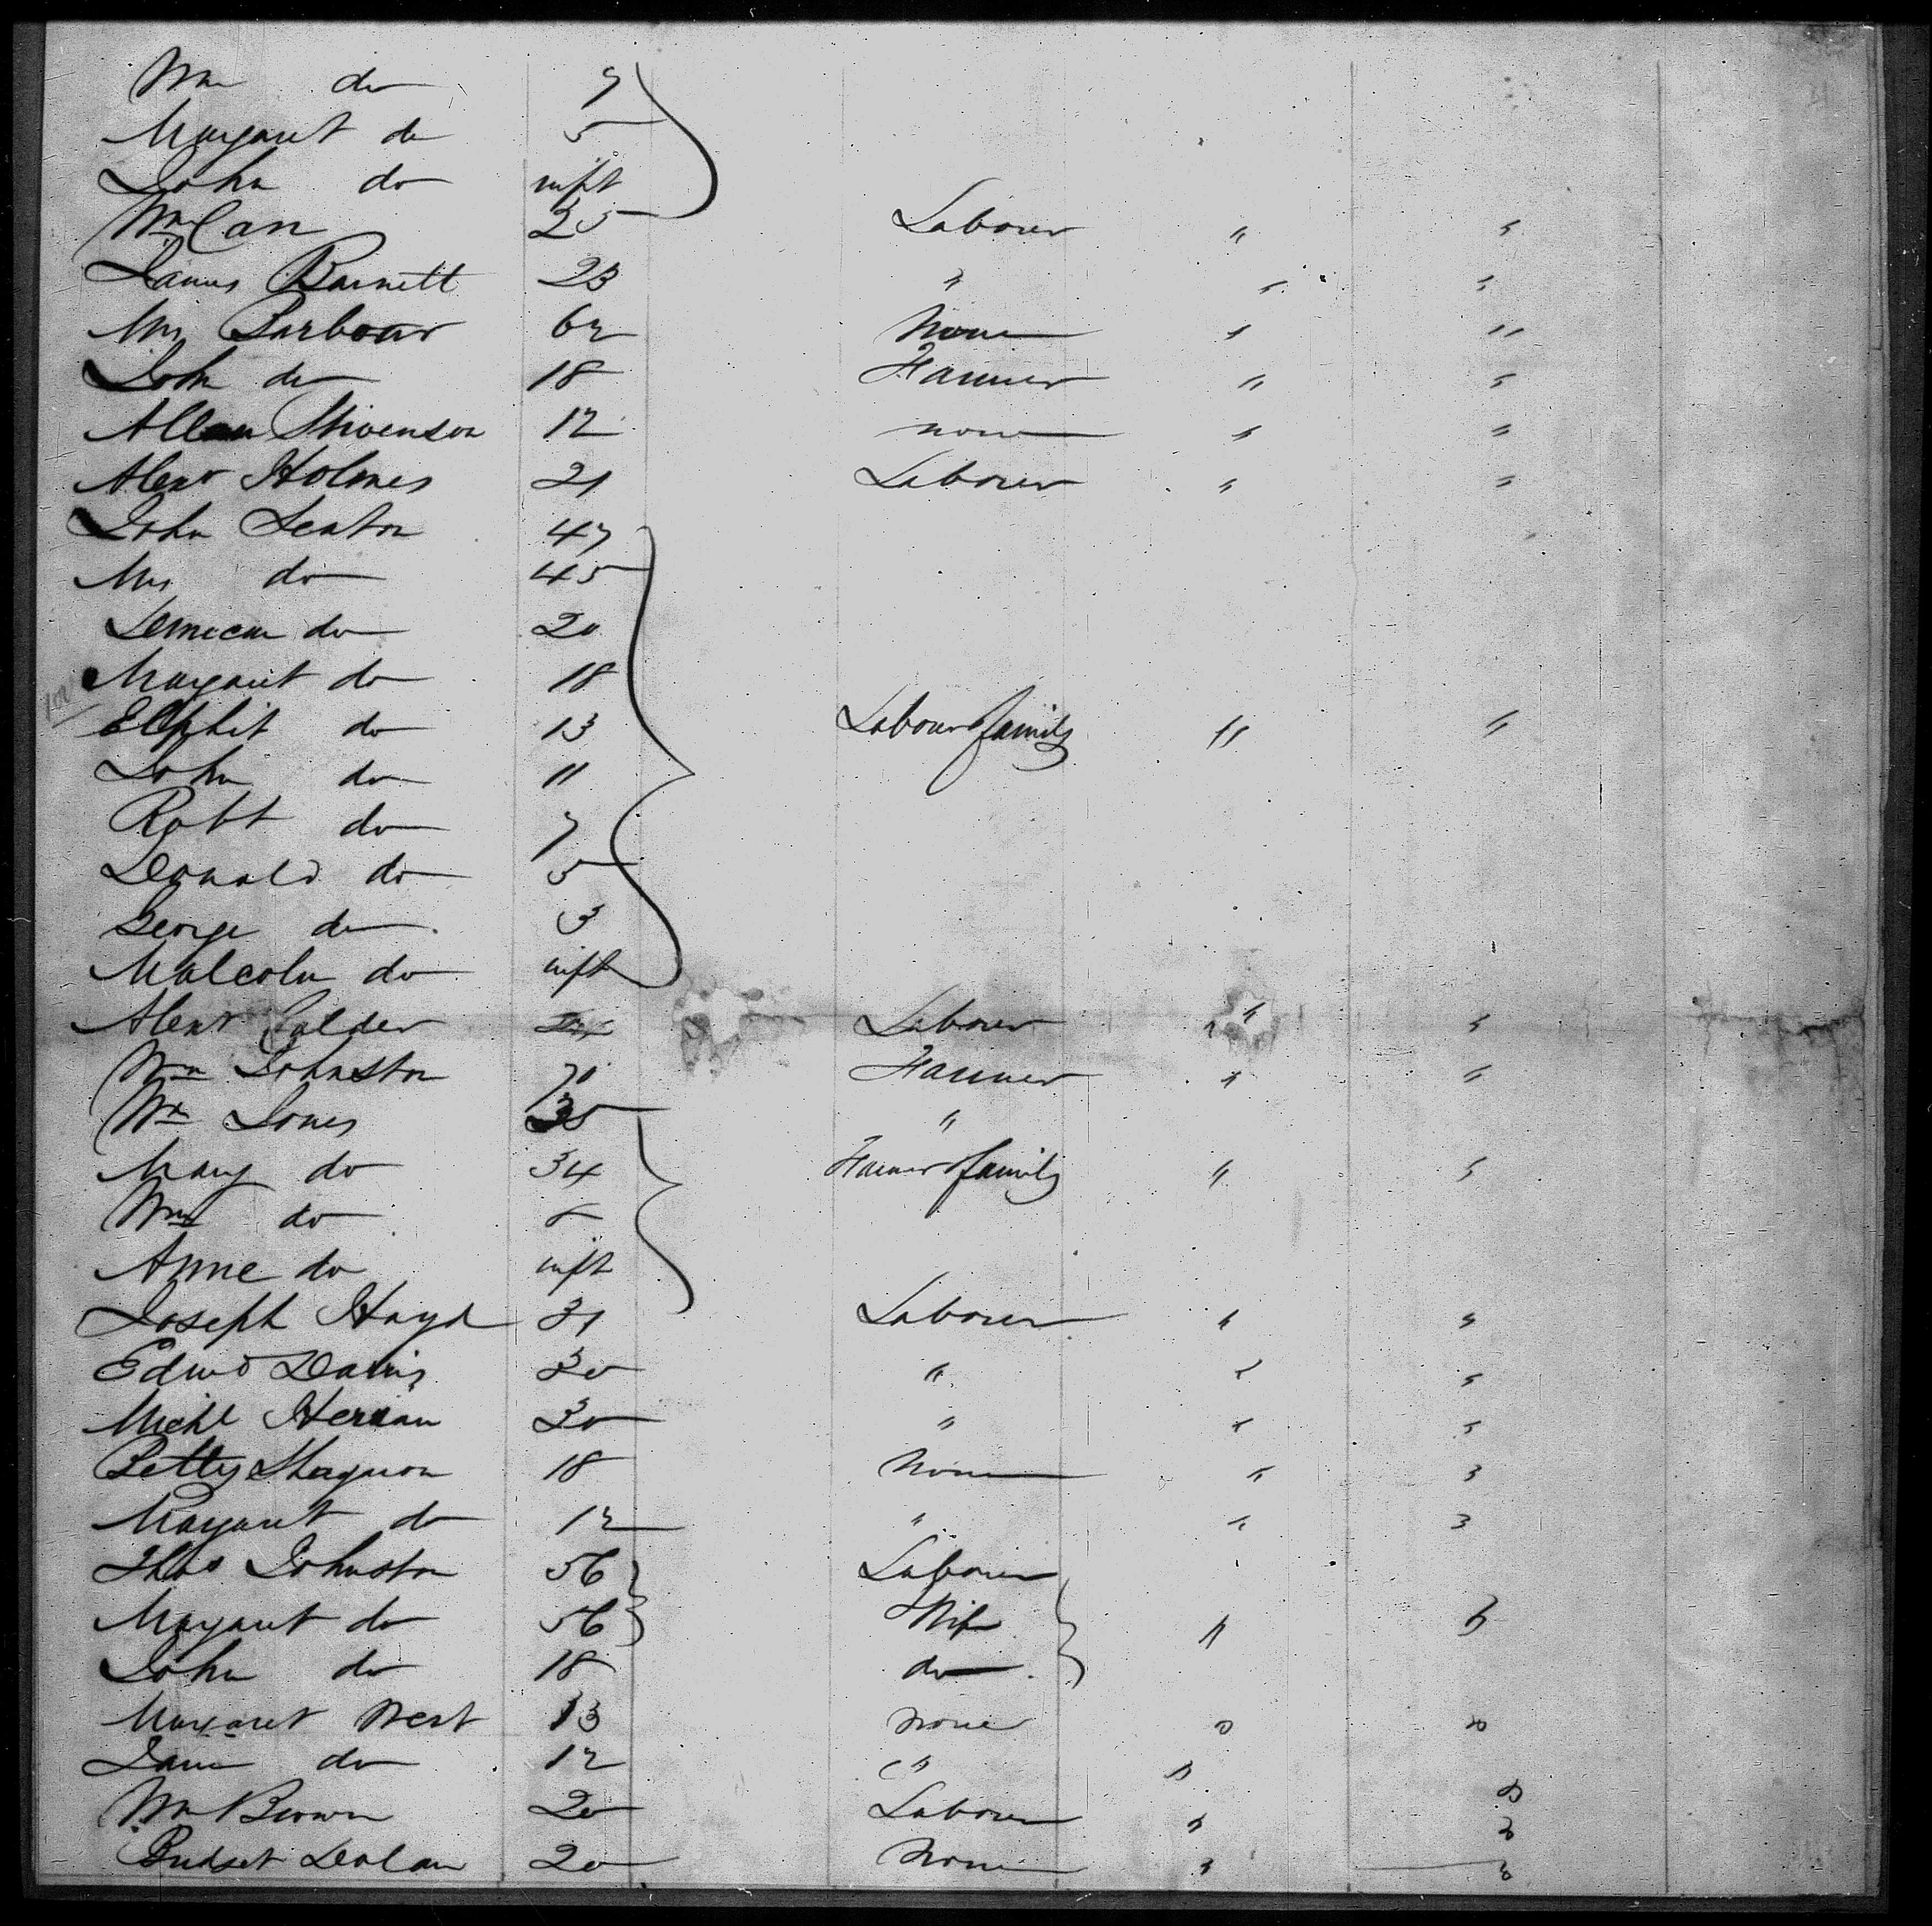 Wm do 7
Margaret do 5
John do inft
Wm Carr 25 Labourer " "
James Barnett 23 " " "
Mrs Barbour 62 None " "
John do 18 Farmer " "
Allan Stivenson 12 none " "
Alexr Holmes 21 Labourer " "
John Seaton 47
Mrs do 45
do 20
Margaret do 18
do 13 Labourer family " "
John do 11
Robt do 7
Donald do 5
George do 3
Malcolm do inft
Alexr Calder Labourer " " "
Wm Johnston 70 Farmer " "
Wm Jones 35 "
Mary do 34 Farmer family " "
Wm do
Anne do inft
Joseph Hayd 31 Labourer " "
Edwd Davis 30 " " "
Michl 30 " " "
Betty 18 None " "
Margaret do 12 " " "
Thos Johnston 56 Labourer
Margaret do 56 Wife " "
John do 18 do
Margaret West 13 none " "
Jane do 12 " " "
Wm Brown 20 Labourer " "
Bridget Dolan 20 None " "